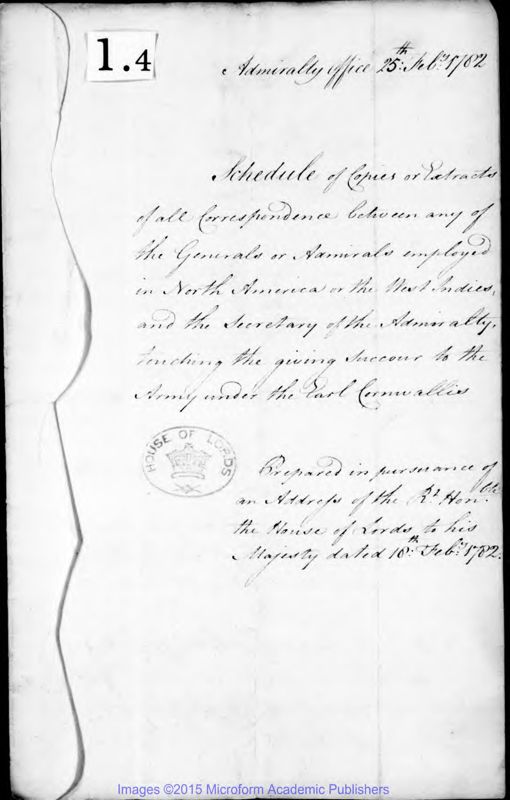 1.4
Admiralty Office 25th: Feb:ry 1782
Schedule of Copies or Extracts
of all Correspondence between any of
the Generals or Admirals employed
in North America or the West Indies,
and the Secretary of the Admiralty,
touching the giving Succour to the
Army under the Earl Cornwallis
HOUSE OF LORDS
Prepared in pursuance of
an Address of the Rt. Hon:ble
the House of Lords to his
Majesty dated 18th: Feb:ry 1782.
Images ©2015 Microform Academic Publishers